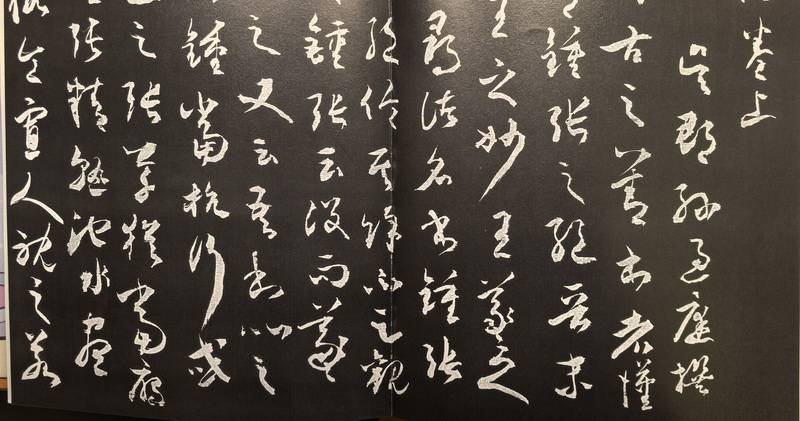 卷上
吳郡孫過庭撰
古之善書者漢
鍾張之絕晉末
王之妙王羲之
尋諸名書鍾張
絕倫其餘不足觀
鍾張云沒而羲
之又云吾書比之
鍾當抗行或
之張草猶當鴈
張精熟池水盡
令寡人耽之若